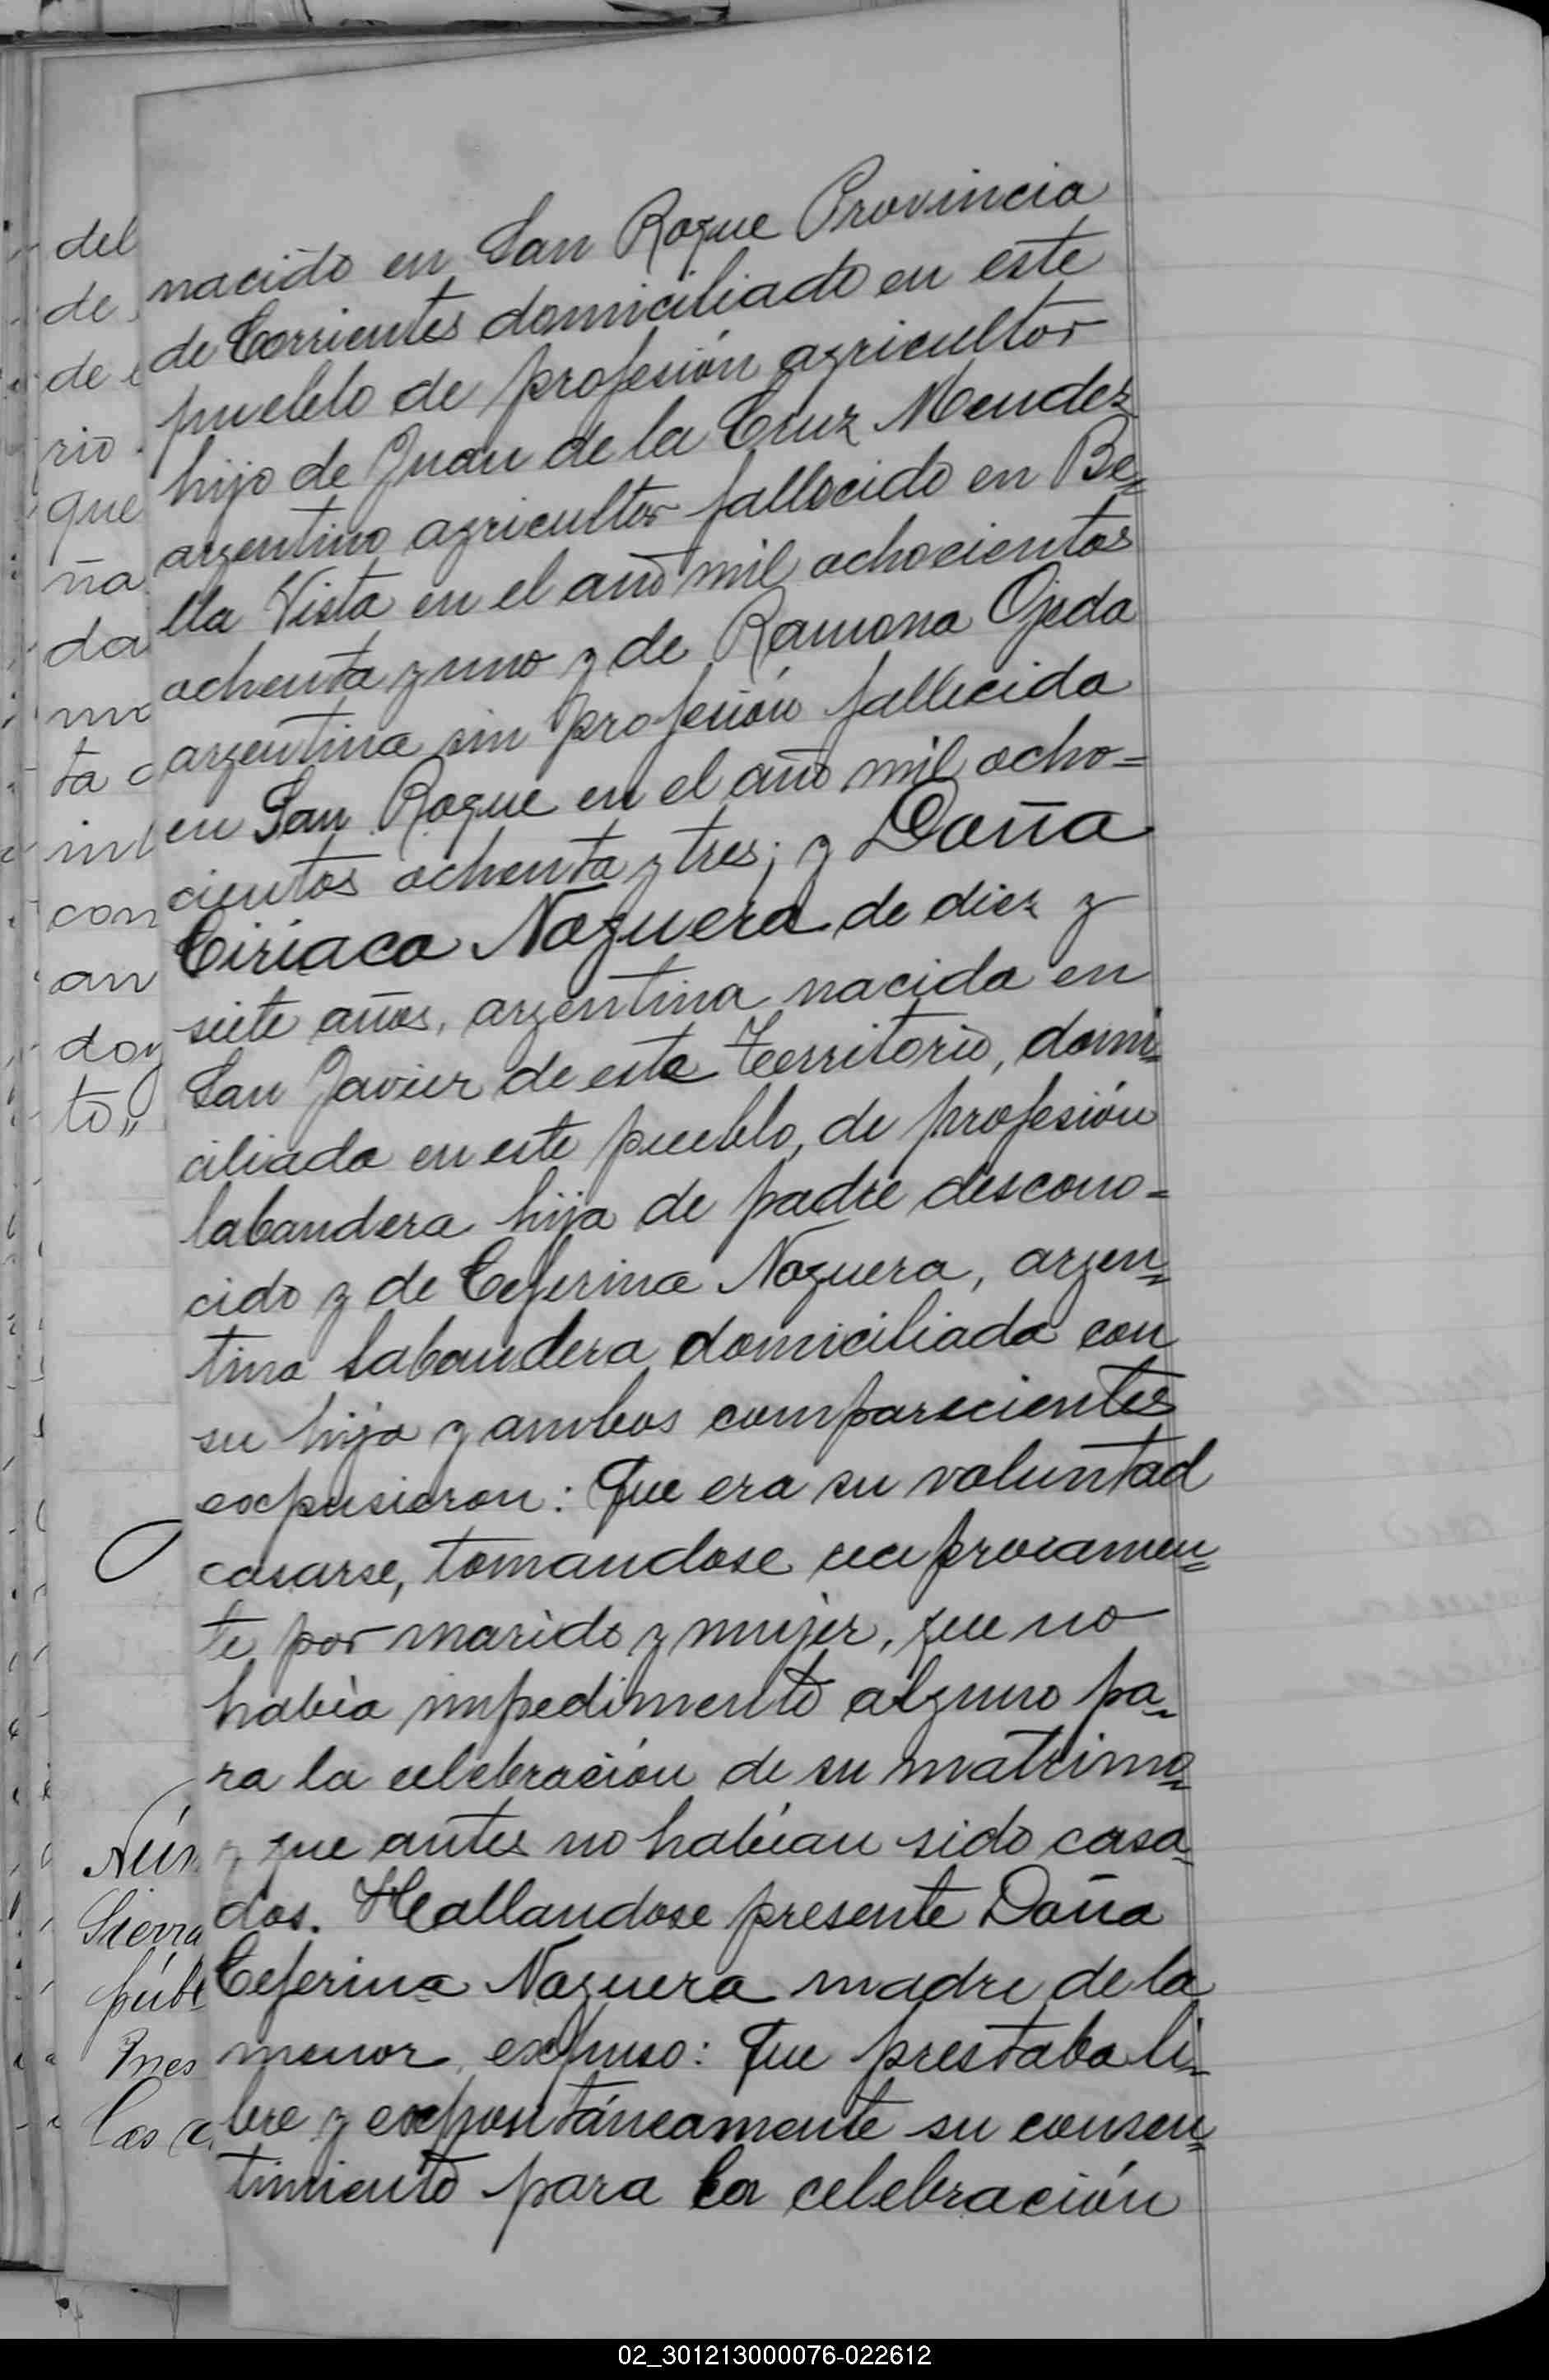 nacido en San Roque Provincia
de Corrientes domiciliado en este
pueblo de profesión agricultor
hijo de Juan de la Cruz Mendez
argentino agricultor fallecido en Be=
lla Vista en el año mil ochocientos
ochenta y uno y de Ramona Ojeda
argentina sin profesión fallecida
en San Roque en el año mil ocho=
cientos ochenta y tres; y Doña
Ciriaca Noguera de diez y
siete años, argentina nacida en
San Javier de este Territorio, domi=
ciliada en este pueblo, de profesión
labandera hija de padre descono=
cido y de Ceferina Noguera, argen=
tina labandera domiciliada con
su hija y ambos comparecientes
expusieron: Que era su voluntad
casarse, tomandose reciprocamen=
te por marido y mujer, que no
había impedimento alguno pa=
ra la celebración de su matrimo=
y que antes no habían sido casa=
dos. Hallandose presente Doña
Ceferina Noguera madre de la
menor, expuso: Que prestaba li=
bre y expontáneamente su consen=
timiento para la celebración
del
de
de
rio
que
ña
da
ta
con
an
to"
Sierra
02_301213000076-022612